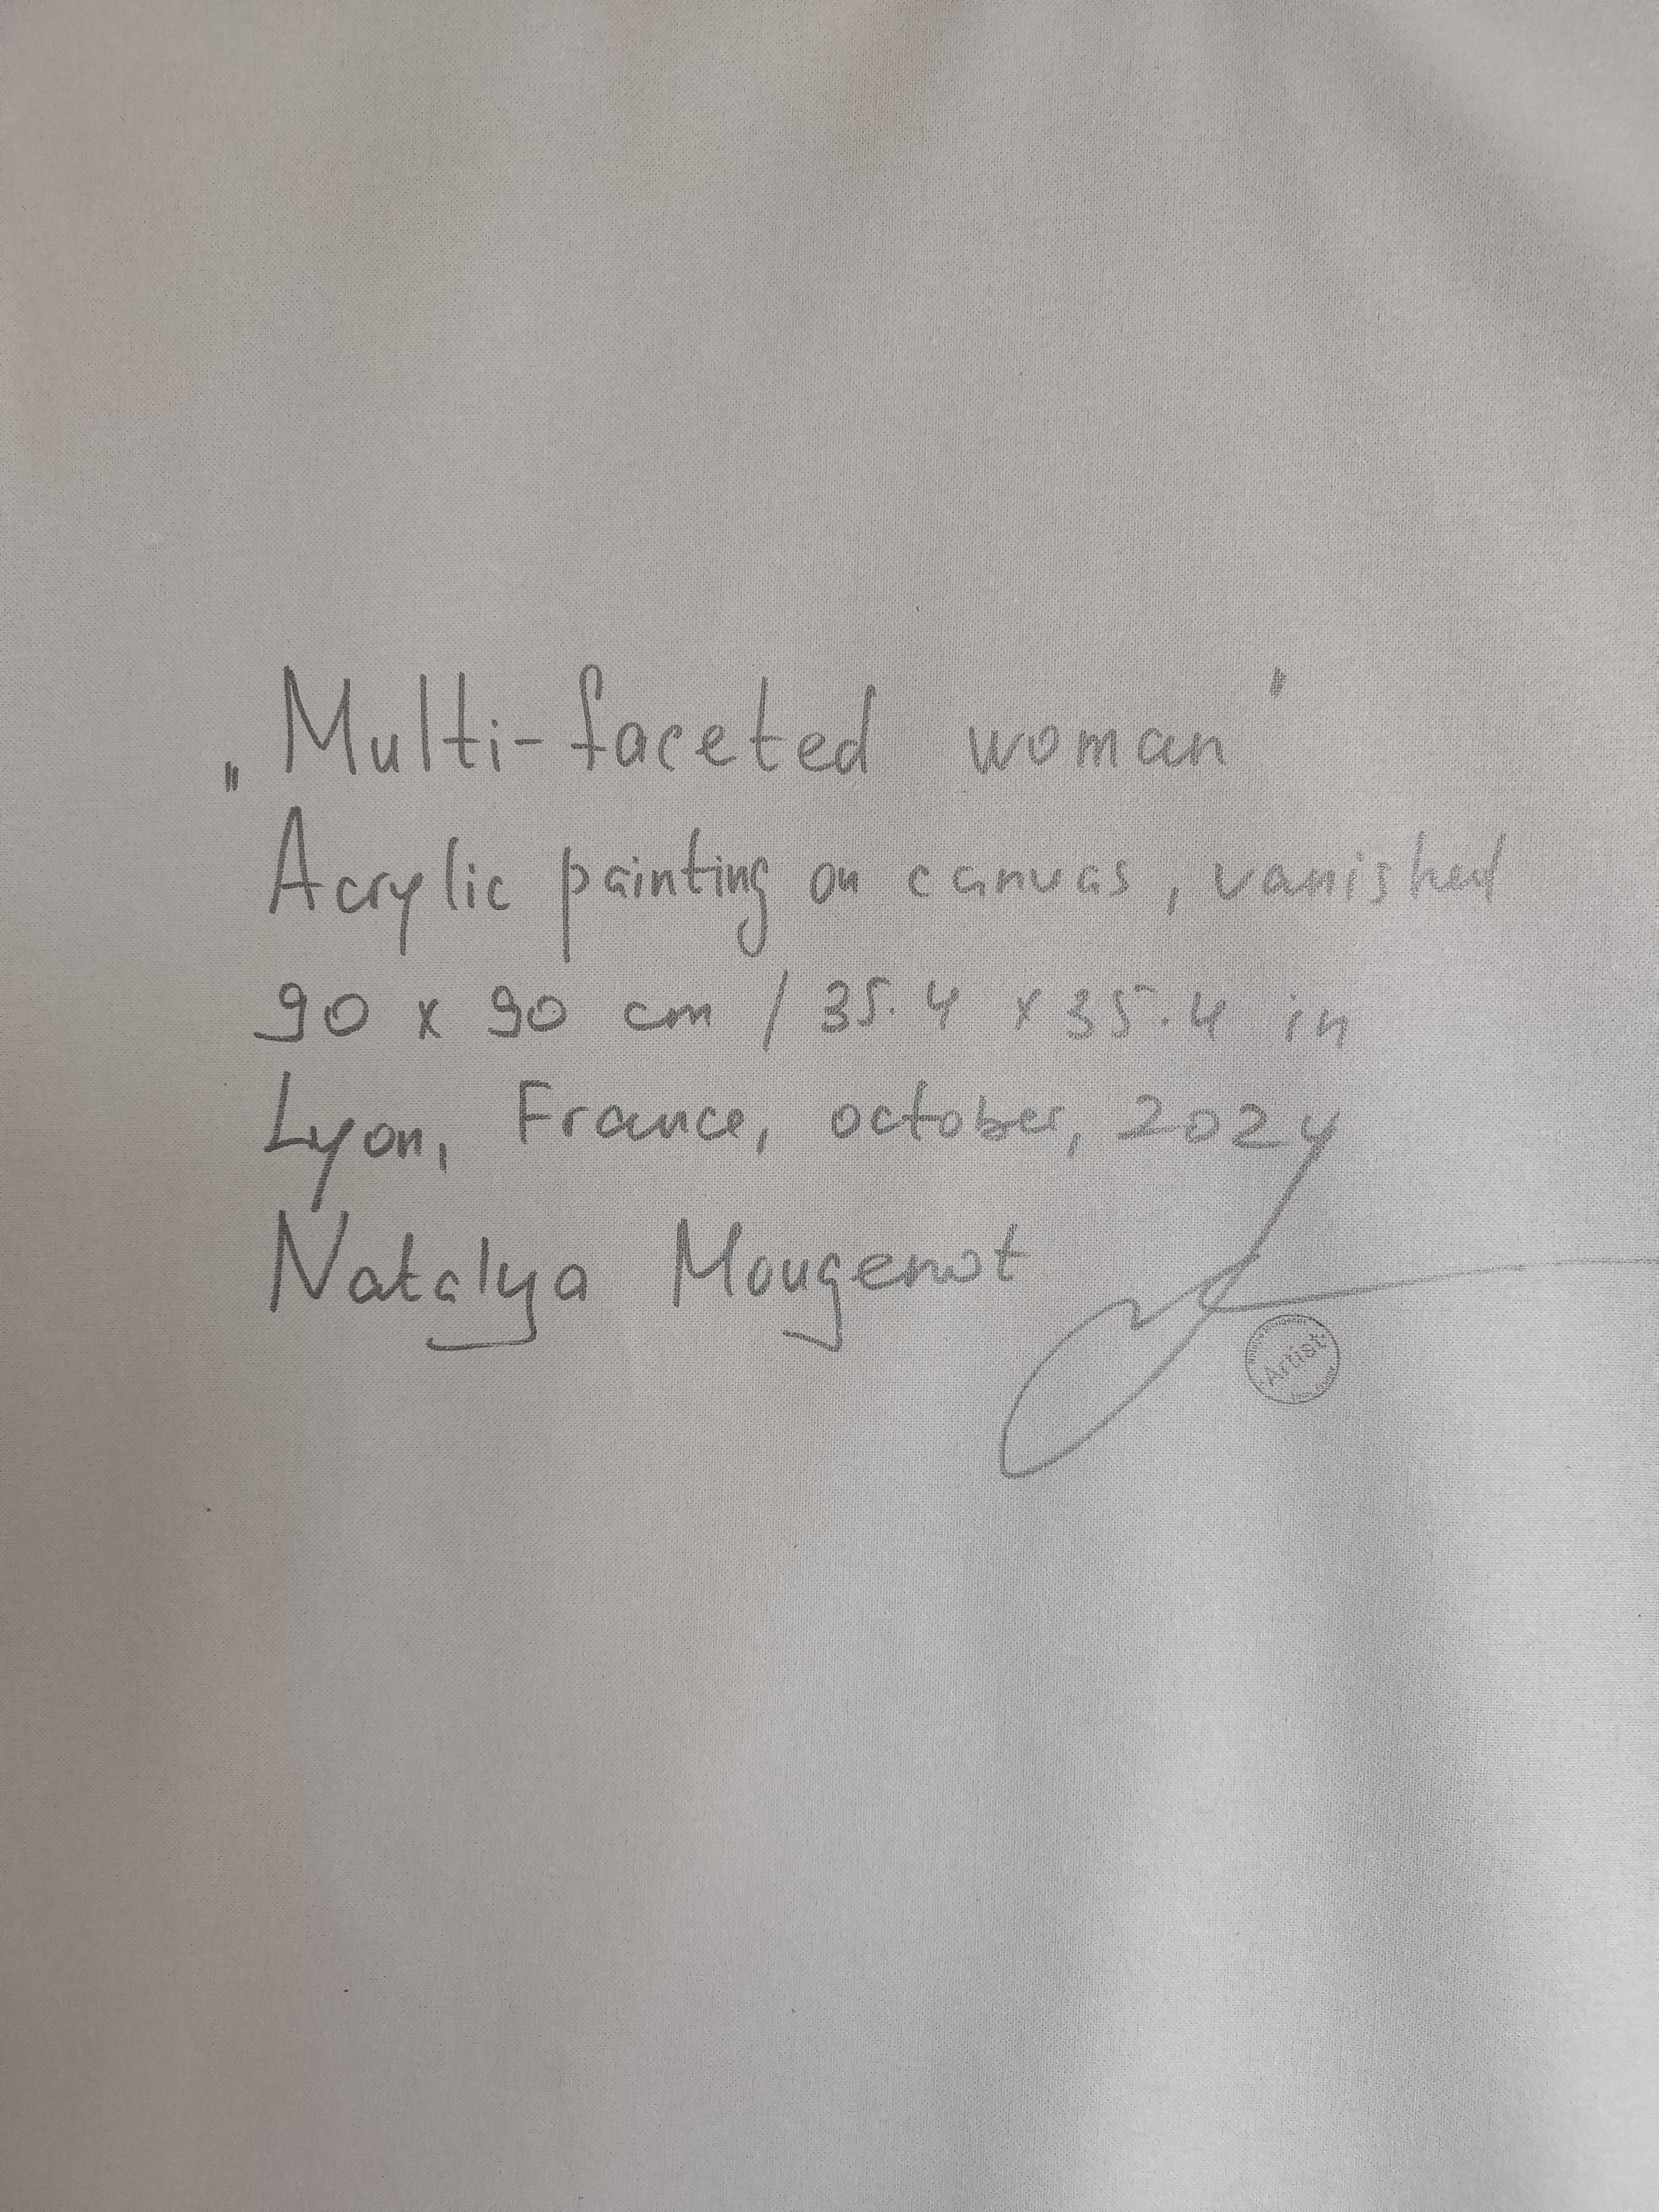 „Multi-faceted woman"
Acrylic painting on canvas, vanished
90 x 90 cm / 35.4 x 35.4 in
Lyon, France, october, 2024
Natalya Mougenot
Artist